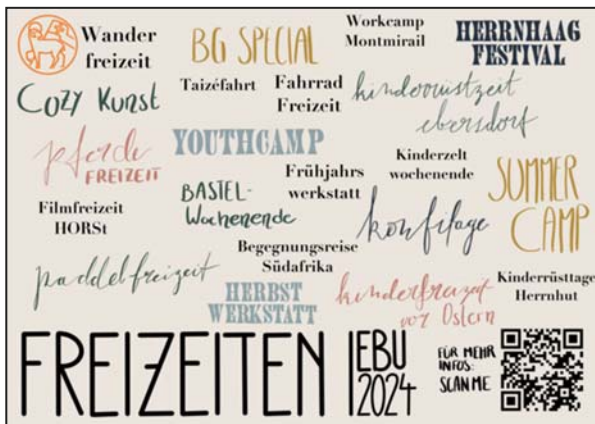 Wander
freizeit
BG SPECIAL
Workcamp
Montmirail
HERRNHAAG
FESTIVAL
COZY KUNST
Taizéfahrt
Fahrrad
Freizeit
kinderrüstzeit
ebersdorf
pferde
FREIZEIT
YOUTHCAMP
Kinderzelt
wochenende
SUMMER
CAMP
Frühjahrs
werkstatt
BASTEL-
Wochenende
Filmfreizeit
HORSt
konfitage
Begegnungsreise
Südafrika
paddelfreizeit
HERBST
WERKSTATT
kinderfreizeit
vor Ostern
Kinderrüsttage
Herrnhut
FREIZEITEN
EBU
2024
FÜR MEHR
INFOS:
SCAN ME